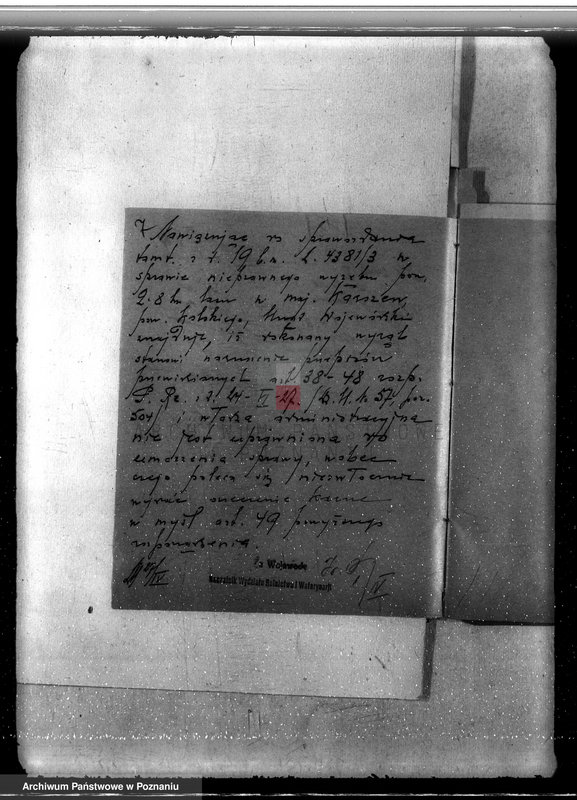 Nawiązując do sprawozdania
tamt. z d. 19 b.m. L. 4381/3 w
sprawie nieprawnego wyrębu pow.
2.8 ha lasu w maj. Karszew,
pow. Kolskiego, Urząd Wojewódzki
znajduje, iż dokonany wyrąb
stanowi naruszenie przepisów
przewidzianych art. 38-48 rozp.
P. Rz. z d. 24-VI-27. /D.U.N. 57, poz.
504/ i władza administracyjna
nie jest uprawniona do
umorzenia sprawy, wobec
czego poleca się niezwłocznie
wydać orzeczenie karne
w myśl art. 49 powyższego
rozporządzenia.
Za Wojewodę
Naczelnik Wydziału Rolnictwa i Weterynarji
IV
Archiwum Państwowe w Poznaniu